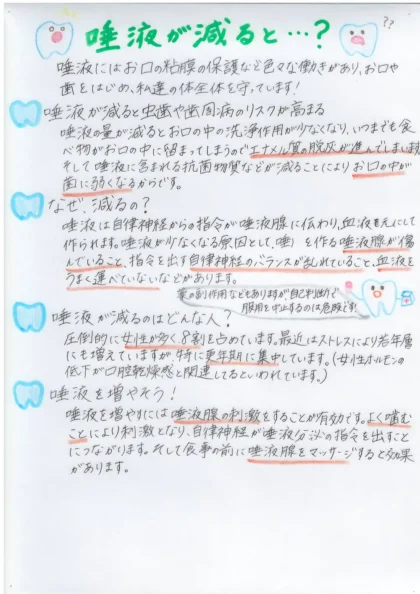 唾液が減ると…?
??
唾液にはお口の粘膜の保護など色々な働きがあり、お口や
歯をはじめ、私達の体全体を守っています!
唾液が減ると虫歯や歯周病のリスクが高まる
唾液の量が減るとお口の中の洗浄作用が少なくなり、いつまでも食
べ物がお口の中に留まってしまうのでエナメル質の脱灰が進んでしまいます
そして唾液に含まれる抗菌物質などが減ることによりお口の中が
菌に弱くなるからです。
なぜ、減るの?
唾液は自律神経からの指令が唾液腺に伝わり、血液を元にして
作られます。唾液が少なくなる原因として、唾)を作る唾液腺が傷
んでいること、指令を出す自律神経のバランスが乱れていること、血液を
うまく運べていないなどがあります。
薬の副作用などもありますが自己判断で
服用を中止するのは危険です!
唾液が減るのはどんな人?
圧倒的に女性が多く8割を占めています。最近はストレスにより若年層
にも増えていますが、特に更年期に集中しています。(女性ホルモンの
低下が口腔乾燥感と関連してるといわれています。)
唾液を増やそう!
唾液を増やすには唾液腺の刺激をすることが有効です。よく噛む
ことにより刺激となり、自律神経が唾液分泌の指令を出すこと
につながります。そして食事の前に唾液腺をマッサージすると効果
があります。